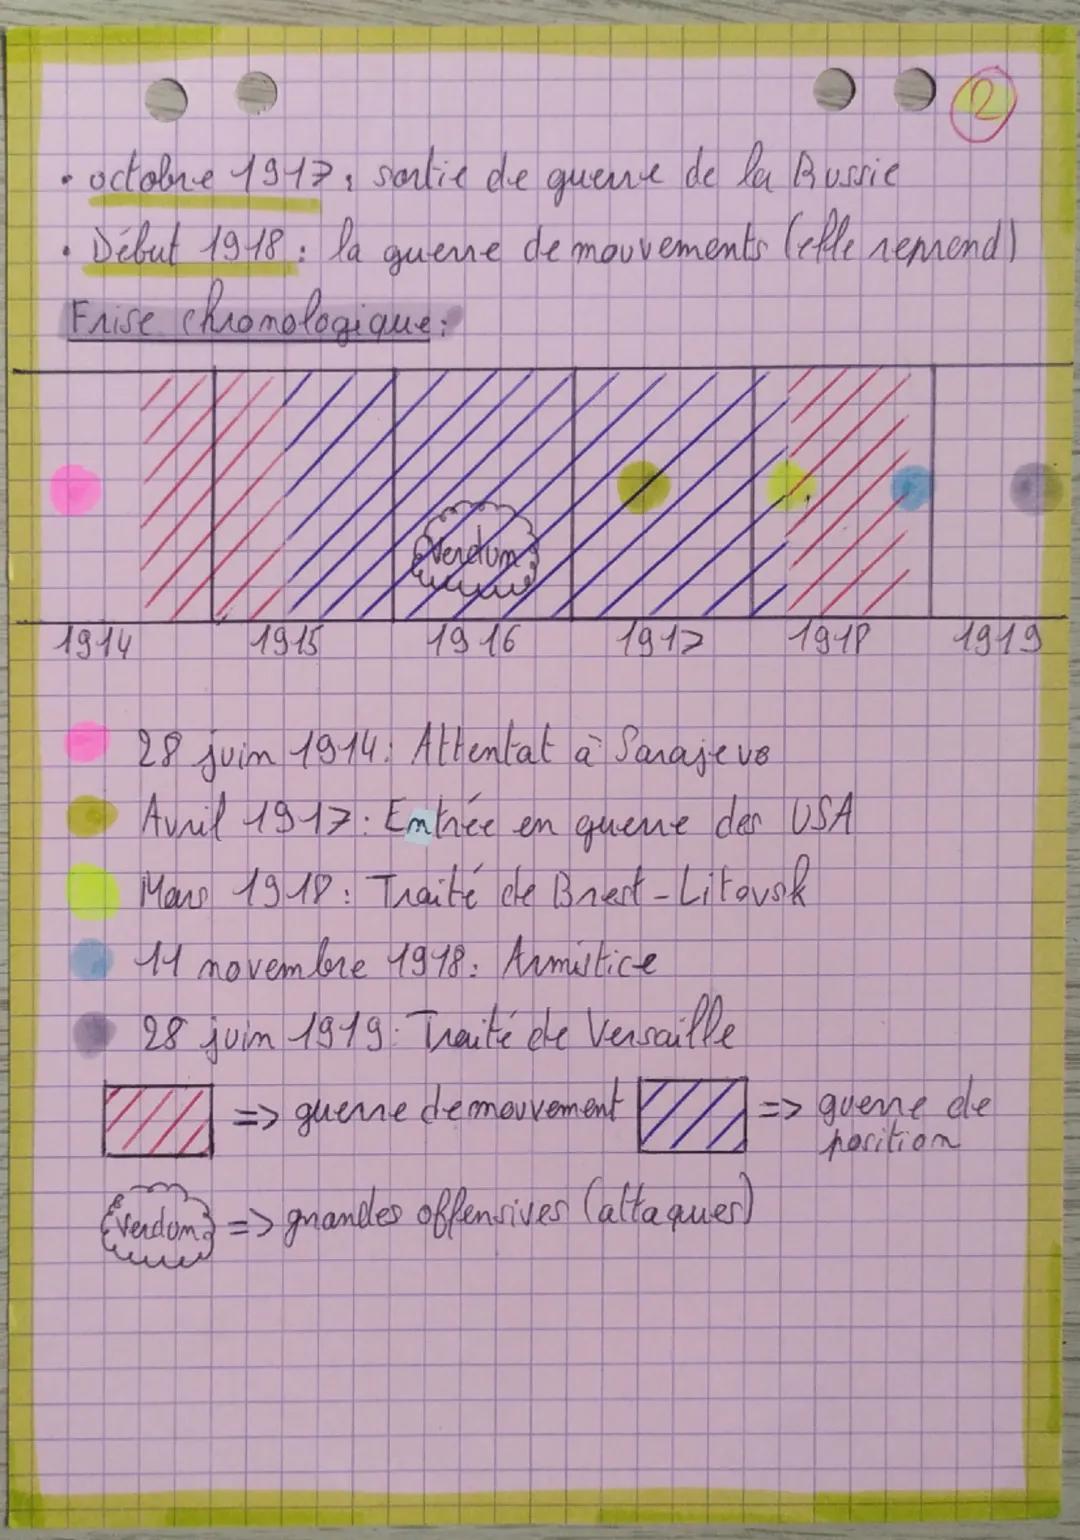 2
• octobre 1917 : sortie de guerre de la Russie
• Début 1918 : la guerre de mouvements (elle reprend)
Frise chronologique :
Verdun
1914 1915 1916 1917 1918 1919
28 juin 1914 : Attentat à Sarajevo
Avril 1917 : Entrée en guerre des USA
Mars 1918 : Traité de Brest-Litovsk
11 novembre 1918 : Armistice
28 juin 1919 : Traité de Versaille
=> guerre de mouvement => guerre de
position
Verdun => grandes offensives (attaques)